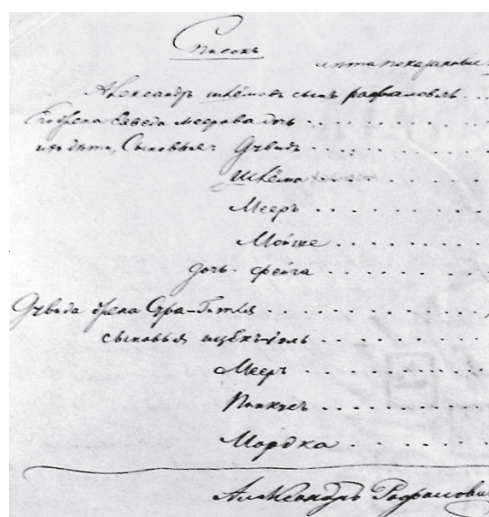 Списокъ
лѣта показаніе
Александръ Шлёмовъ сынъ Рафаловичъ
Его жена Сяведа Меерова дочь
ихъ дѣти, Сыновья: Дувидъ
Шлёма
Мееръ
Мойше
дочь Фейга
Дувида жена Сура-Гитля
сыновья
Мееръ
Пинкусъ
Мордка
Александръ Рафалови